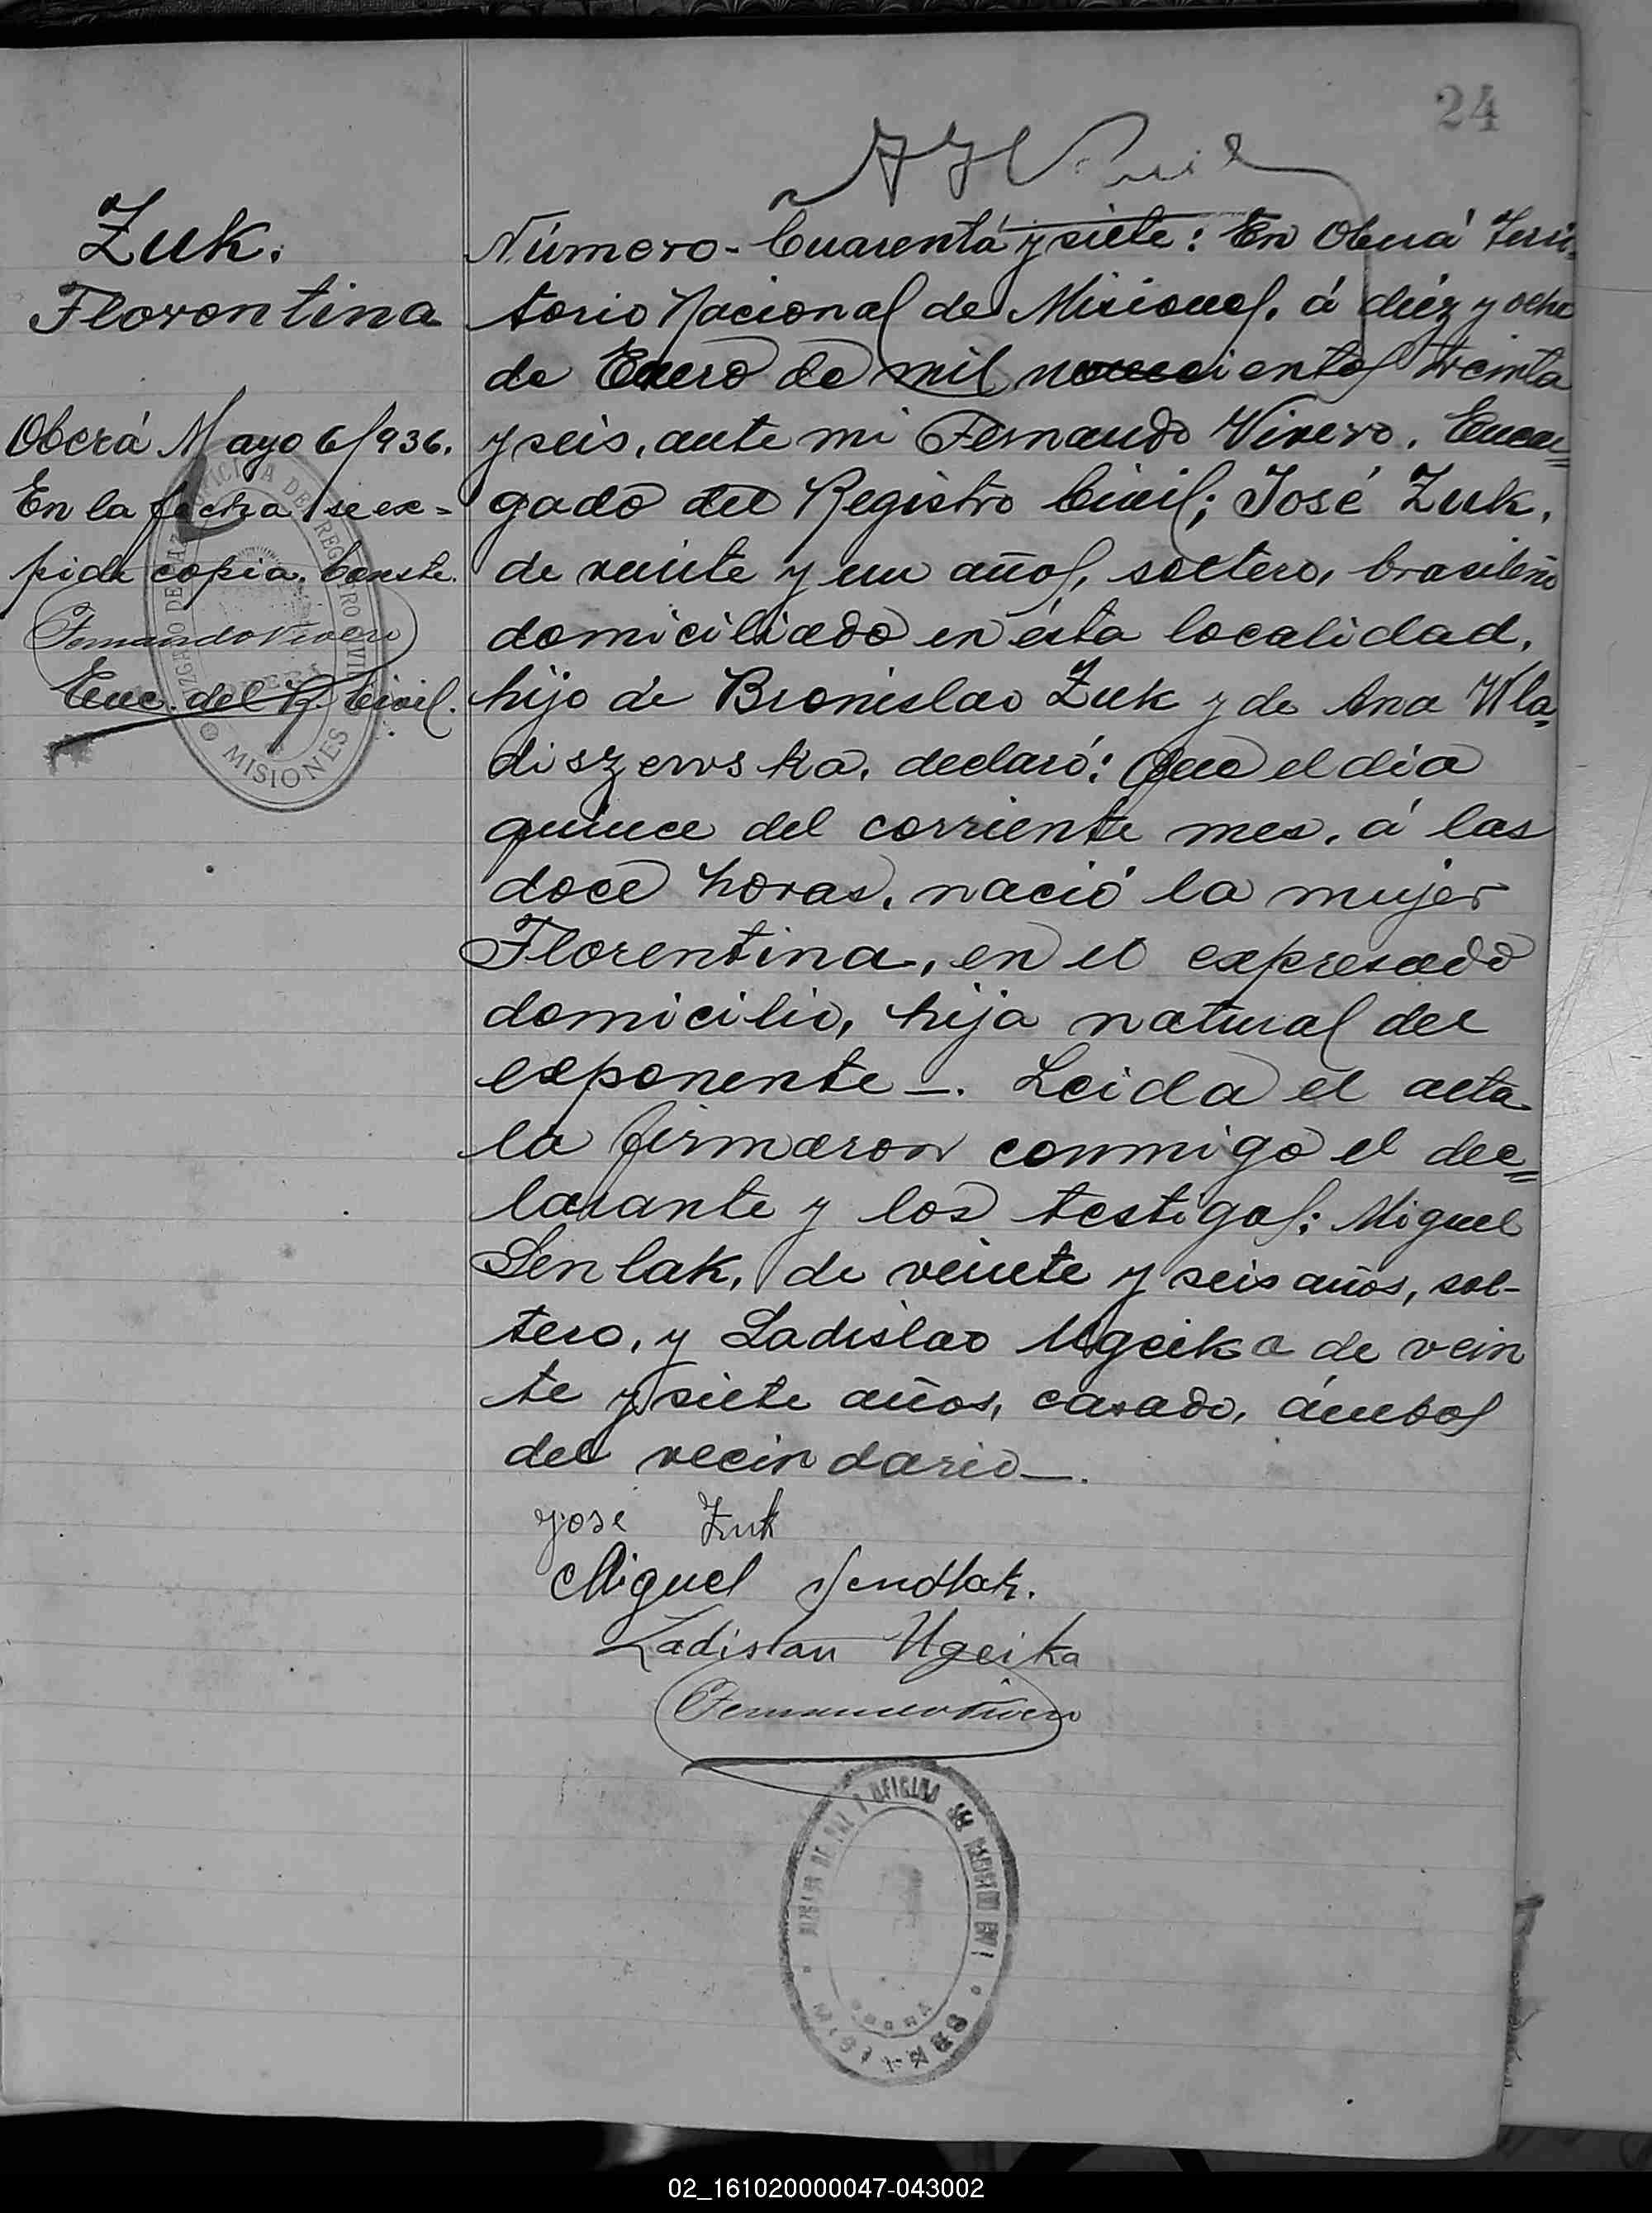 24
Zuk.
Florentina
Oberá Mayo 6/936.
En la fecha se ex=
pide copia. Conste.
Fernando Vivero
Enc. del R. Civil.
MISIONES
Número - Cuarenta y siete: En Oberá Terri=
torio Nacional de Misiones, á diéz y ocho
de Enero de mil novecientos treinta
y seis, ante mi Fernando Vivero, Encar=
gado del Registro Civil; José Zuk,
de veinte y un años, soltero, brasileño
domiciliado en ésta localidad,
hijo de Bronislao Zuk y de Ana Wla=
diszewska, declaró: Que el día
quince del corriente mes, á las
doce horas, nació la mujer
Florentina, en el expresado
domicilio, hija natural del
exponente—. Leida el acta
la firmaron conmigo el dec=
larante y los testigos: Miguel
Senlak, de veinte y seis años, sol-
tero, y Ladislao Ugeika de vein
te y siete años, casado, ámbos
del vecindario—.
José Zuk
Miguel Sendlak.
Ladislau Ugeika
Fernando Vivero
02_161020000047-043002